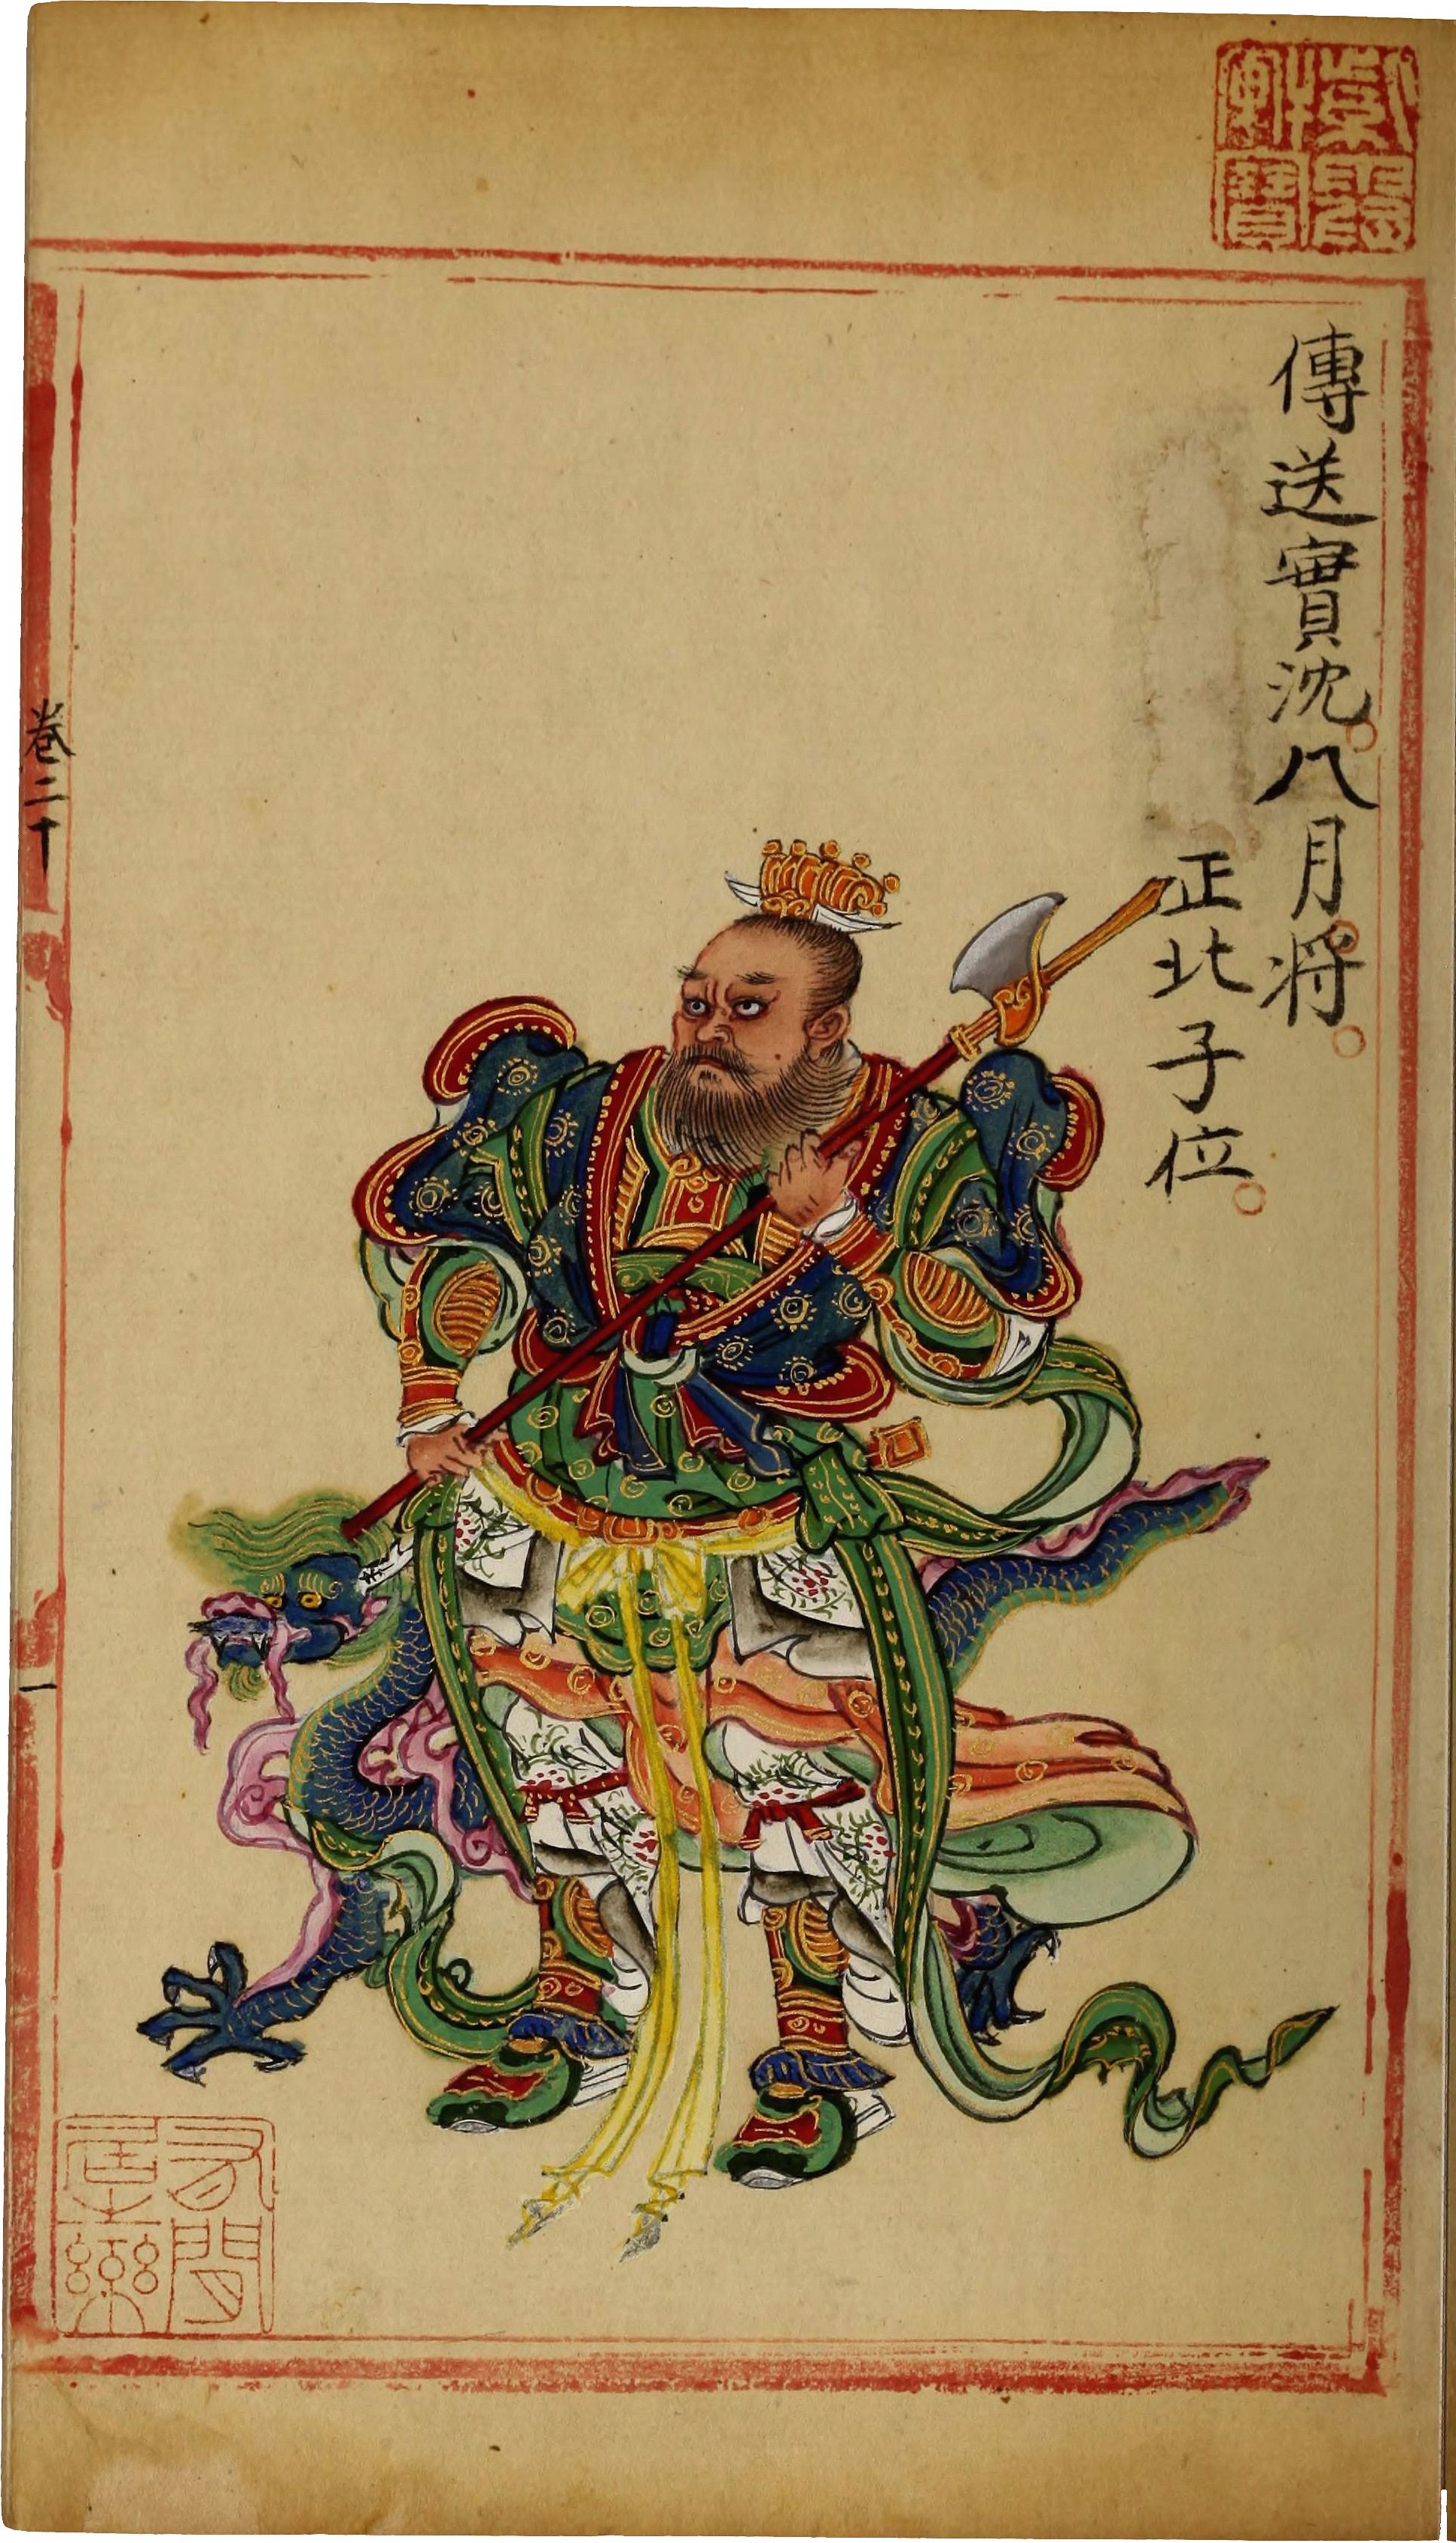 傳送實沈八月将
正北子位
卷二十
一